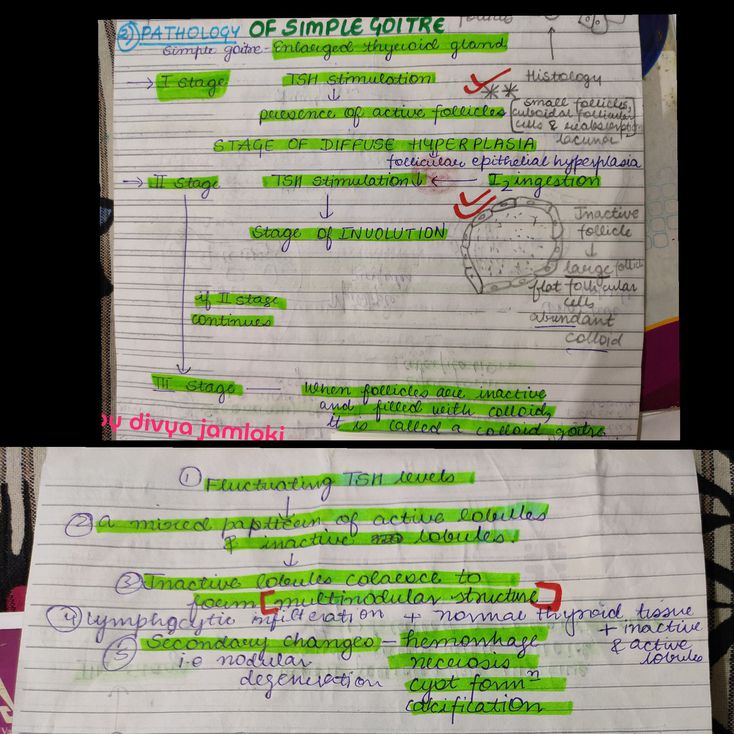 2) PATHOLOGY OF SIMPLE GOITRE
Simple goitre - Enlarged thyroid gland
→ I stage TSH stimulation Histology
↓ **
presence of active follicles [small follicles,
cuboidal follicular
cells & reabsorption
lacunar]
STAGE OF DIFFUSE HYPERPLASIA
follicular epithelial hyperplasia
→ II stage TSH stimulation ↓ ← I2 ingestion
↓
Stage of INVOLUTION
Inactive
follicle
↓
large follicle
flat follicular
cells
abundant
colloid
if II stage
continues
III stage — when follicles are inactive
and filled with colloid,
It is called a colloid goitre.
by divya jamloki
① Fluctuating TSH levels
↓
② a mixed papttern of active lobules
& inactive lobules.
↓
③ Inactive lobules colaesce to
form [multinodular structure]
④ lymphocytic infilteration + normal thyroid tissue
+ inactive
& active
lobules
⑤ Secondary changes - hemorrhage
i.e nodular necrosis
degeneration cyst formⁿ
calcification